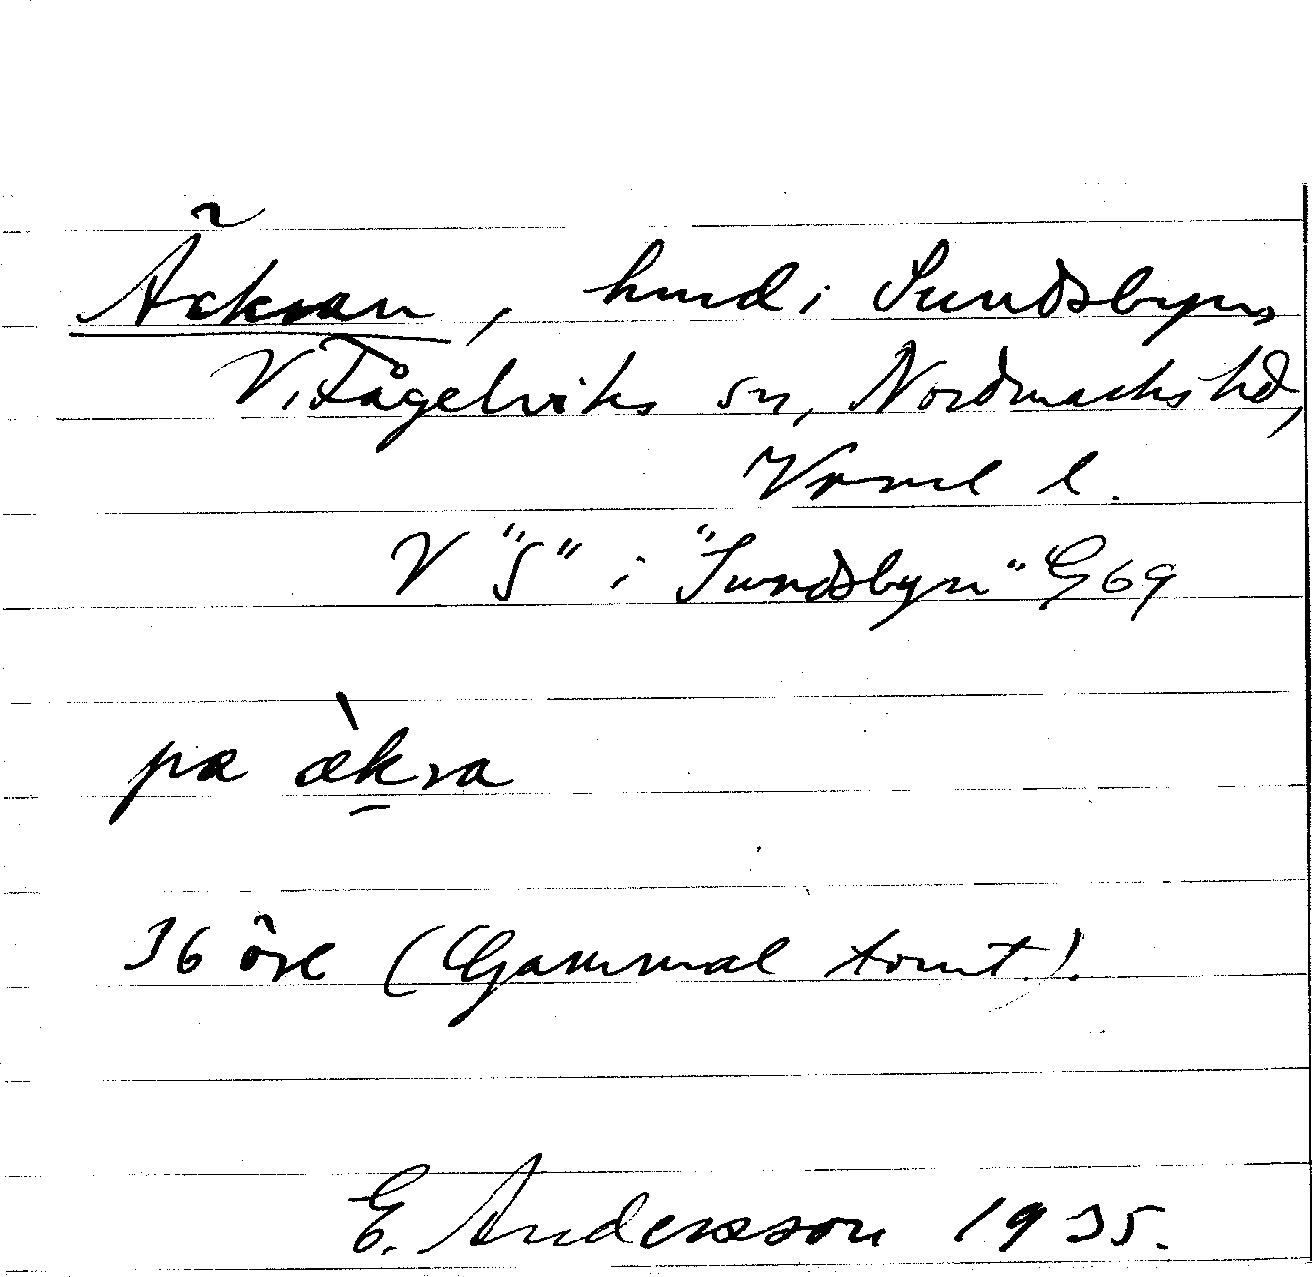 Äckran, hmd i Sundsbyn,
V. Fågelviks sn, Nordmarks hd,
Vrml l.
V "S" i "Sundsbyn" G69
pæ æ̀kra
36 öre (Gammal tomt).
E. Andersson 1935.